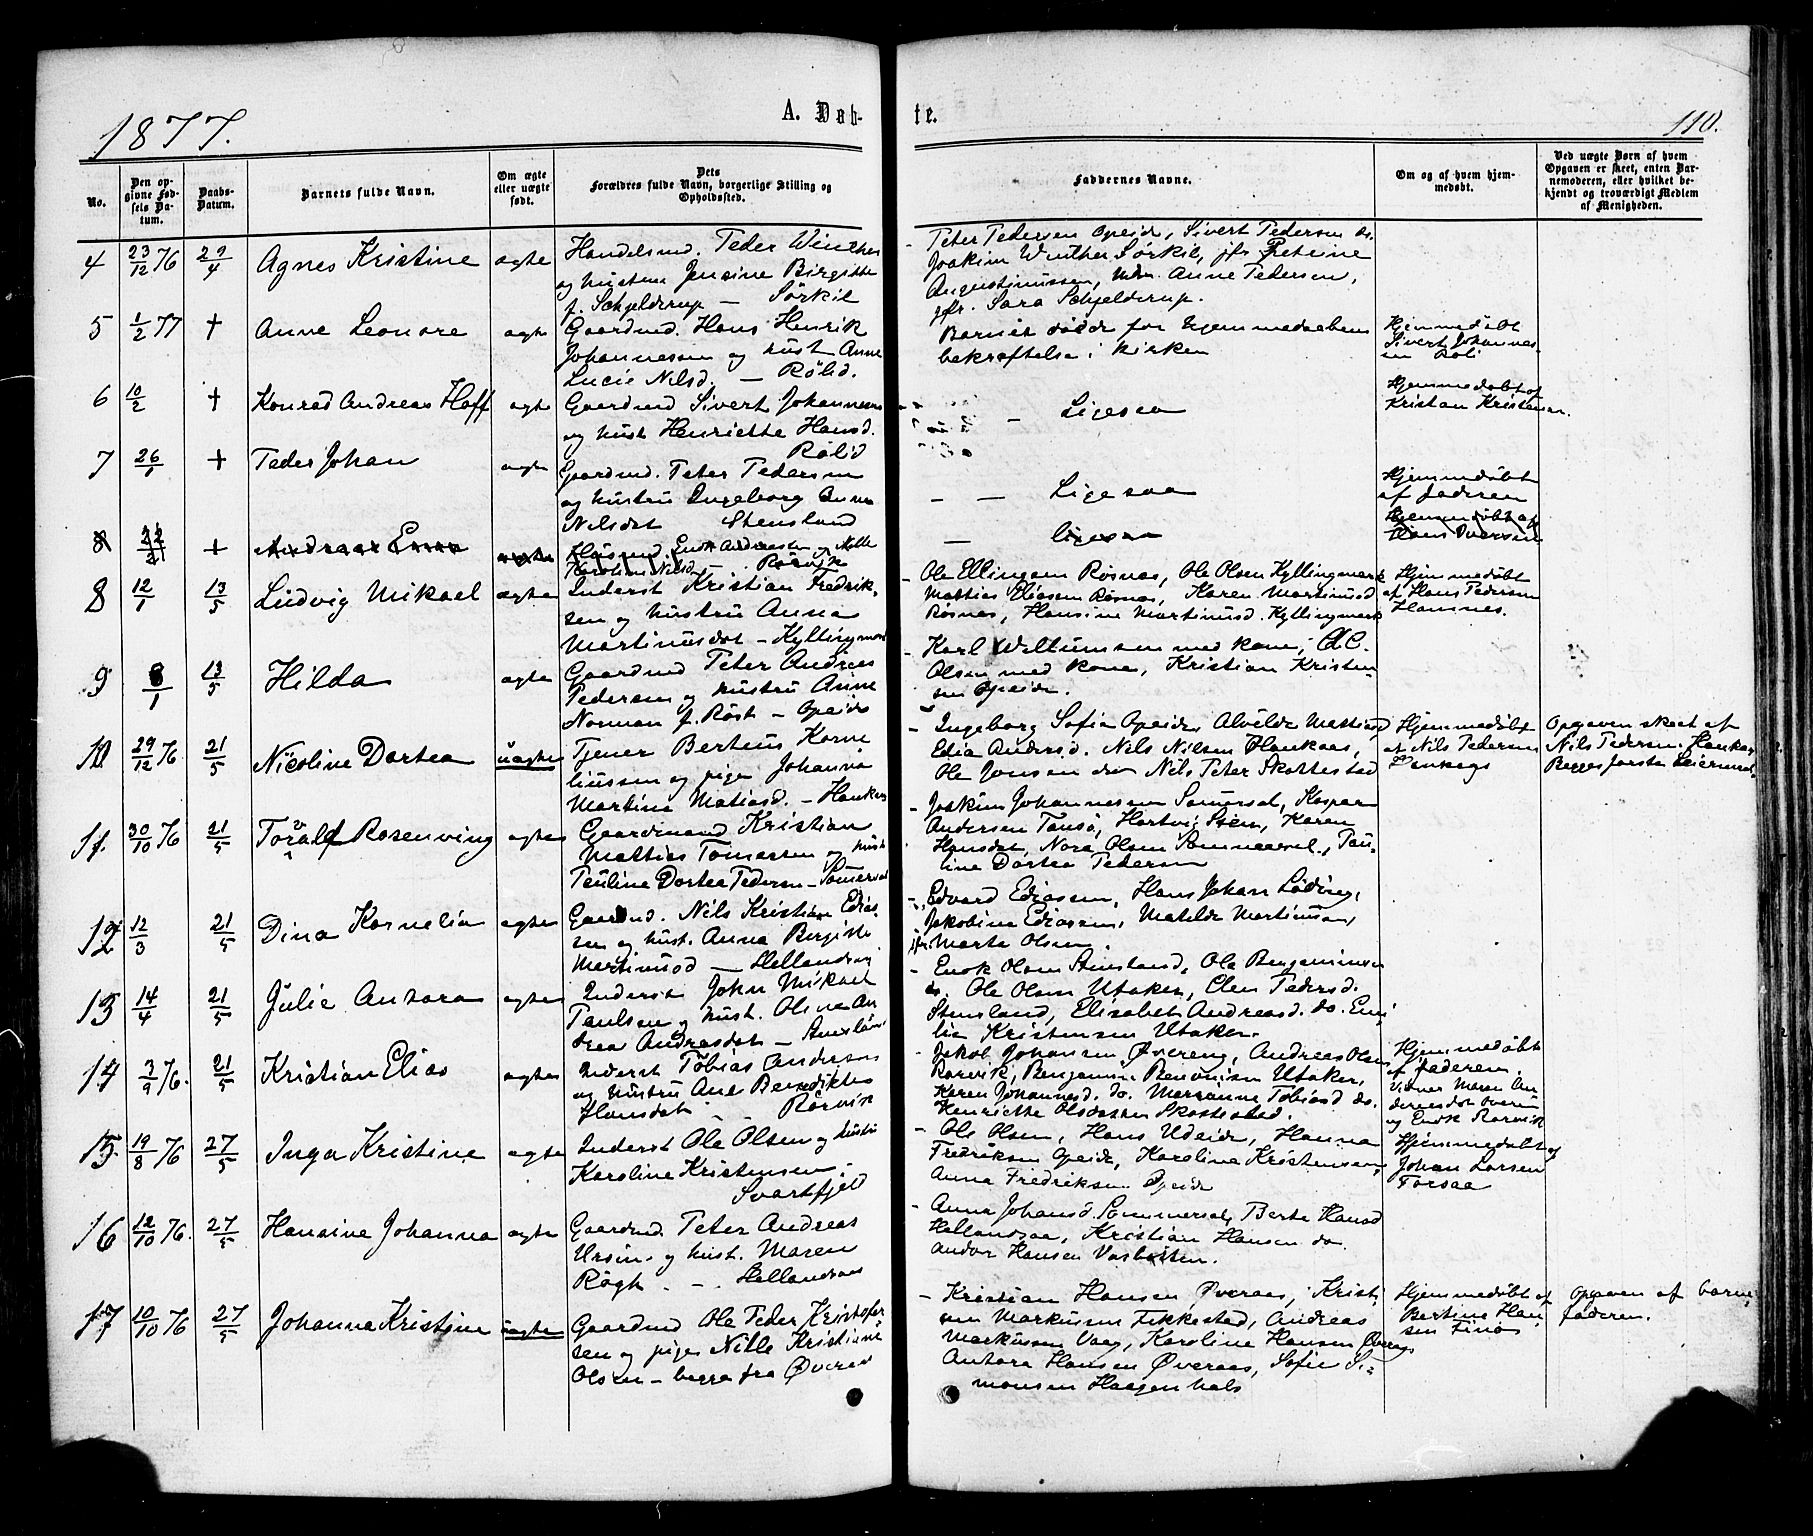 1877.
A. Døb-
te.
110.
No.
Den op-
givne Fød-
sels Da-
tum.
Daabs-
Datum.
Barnets fulde Navn.
Om ægte
eller uægte
født.
Dets
Forældres fulde Navn, borgerlige Stilling og
Opholdssted.
Faddernes Navne.
Om og af hvem hjem-
medøbt.
Ved uægte Børn af hvem
Opgaven er skeet, enten Bar-
nemoderen, eller hvilket be-
kjendt og troværdigt Medlem
af Menigheden.
4 23/12 76 29/4 Agnes Kristine ægte
Handelsmd. Peder Winther
og hustru Jensine Birgitte
f. Schjelderup — Sörkil
Peter Pedersen Opeide, Sivert Pedersen do.
Joakim Winther Sörkil, jfr Petrine
Augustinussen, Mdm. Anne Pedersen,
jfr. Sara Schjelderup.
5 1/2 77 + Anne Leonore ægte
Gaardmd. Hans Henrik
Johannessen og hust Anne
Lucie Nilsd. — Rølid.
Barnet døde før hjemmedaabens
bekræftelse i kirken
Hjemmedøbt
Sivert Johannes-
en Röli
6 10/2 + Konrad Andreas Hoff ægte
Gaardmd Sivert Johannesen
og hust Henriette Hansd.
Rølid
— Ligesaa
Hjemmedøbt af
Kristian Kristensen.
7 26/1 + Peder Johan ægte
Gaardmd. Peter Pedersen
og hustru Ingeborg Anna
Nilsdat Stensland
— — Ligesaa
Hjemmedøbt
af faderen
8 22/4 + Andreas
Husmd. Enok Andreassen og
Karoline Nilsd. — Rörvik
— ligesaa
Hjemmedøbt af
Hans
8 12/1 13/5 Ludvig Mikael ægte
Inderst Kristian Fredrik-
sen og hustru Anna
Martinusdat — Kyllingmark
Ole Ellingsen Røsnæs, Ole Olsen Kyllingmark
Mattias Eliassen Røsnæs, Karen Martinusd
Røsnæs, Hansine Martinusd. Kyllingmark
Hjemmedøbt
af Hans Pedersen
Hamnes.
9 8/1 13/5 Hilda ægte
Gaardmd Peter Andreas
Pedersen og hustru Anne
Norman f. Röst — Opeide
Karl Wiltumsen med kone, A.C.
Olsen med kone, Kristian Kristen-
sen Opeide.
10 29/12 76 21/5 Nicoline Dortea uægte
Tjener Berteus Korne
liussen og pige Johanna
Martina Matiasd. — Haukøs
Ingeborg Sofie Opeide, Alvilde Mattiasd
Edia Andersd. Nils Nilsen Haukaas,
Ole Jonsen do Nils Peter Skottestad
Hjemmedøbt
af Nils Pedersen
Opgaven skeet af
Nils Pedersen Haukøs
Begges første Leiermaal
11. 30/10 76 21/5 Toralf Rosenving ægte
Gaardmand Kristian
Mattias Tomassen og hust
Pauline Dortea Pedersen — Sømersæt
Joakim Johannesen Sømersæt, Kaspar
Andersen Tansö, Hartvig Steen, Karen
Hansdat, Nora Olsen, Pau-
line Dortea Pedersen
12 12/3 21/5 Dina Kornelia ægte
Gaardmd. Nils Kristian Edias-
sen og hust. Anna Bergitte
Martinusd — Hellandsø
Edvard Ediassen, Hans Johan Løding,
Jakobine Ediassen, Matilde Martinusen,
jfr. Marta Olsen.
13 14/4 21/5 Julie Antora ægte
Inderst John Mikael
Paulsen og hust. Oline An
drea Andreasdat — Stensland
Enok Olsen Stensland, Ole Benjaminsen
do. Ole Olsen Utaker, Elen Pedersd.
Stensland, Elisabet Andreasd. do. Emi
lie Kristensen Utaker.
14 3/9 76. 21/5 Kristian Elias ægte
Inderst Tobias Andersen
og hustru Ane Benedikte
Hansdat — Rörvik
Jakob Johansen Øvereng, Andreas Olsen
Rørvik, Benjamin Benonisen Utaker,
Karen Johannesd. do. Marianne Tobiasd do.
Henriette Olsdatter Skottestad.
Hjemmedøbt
af faderen.
Vidner Maren An
dersdat
og Enok Rørvik
15. 19/8 76 27/5 Inga Kristine ægte
Inderst Ole Olsen og hustru
Karoline Kristensen.
Svartfjeld
Ole Olsen, Hans Udeide, Hanna
Fredriksen Opeide, Karoline Kristensen,
Anna Fredriksen Opeide
Hjemmedøbt af
Johan Larsen
Forsaa
16 12/10 76. 27/5 Hansine Johanna ægte
Gaardmd Peter Andreas
Ursin og hust. Maren
Røgh — Hellandsøen
Anna Johansd. Sommersæt, Berta Hansd
Hellandsøa, Kristian Hansen do.
Andor Hansen Vasbotten.
17 10/10 76 27/5 Johanna Kristine uægte
Gaardmd Ole Peder Kristofer
sen og pige Nille Kristiane
Olsen — begge fra Øveraas
Kristian Hansen, Øveraas, Krist-
en Markusen Fikkestad, Andreas
Markussen Vaag, Karoline Hansen Øveraas
Antora Hansen Øveraas, Sofie Si-
monsen Haagenhals
Hjemmedøbt af
Bertine Han
sen Finö
opgaven af barne-
faderen.